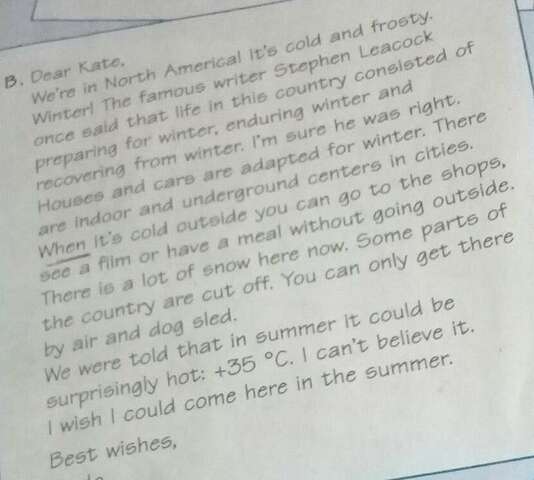 B. Dear Kate,
We're in North America! It's cold and frosty.
Winter! The famous writer Stephen Leacock
once said that life in this country consisted of
preparing for winter, enduring winter and
recovering from winter. I'm sure he was right.
Houses and cars are adapted for winter. There
are indoor and underground centers in cities.
When it's cold outside you can go to the shops,
see a film or have a meal without going outside.
There is a lot of snow here now. Some parts of
the country are cut off. You can only get there
by air and dog sled.
We were told that in summer it could be
surprisingly hot: +35 °C. I can't believe it.
I wish I could come here in the summer.
Best wishes,